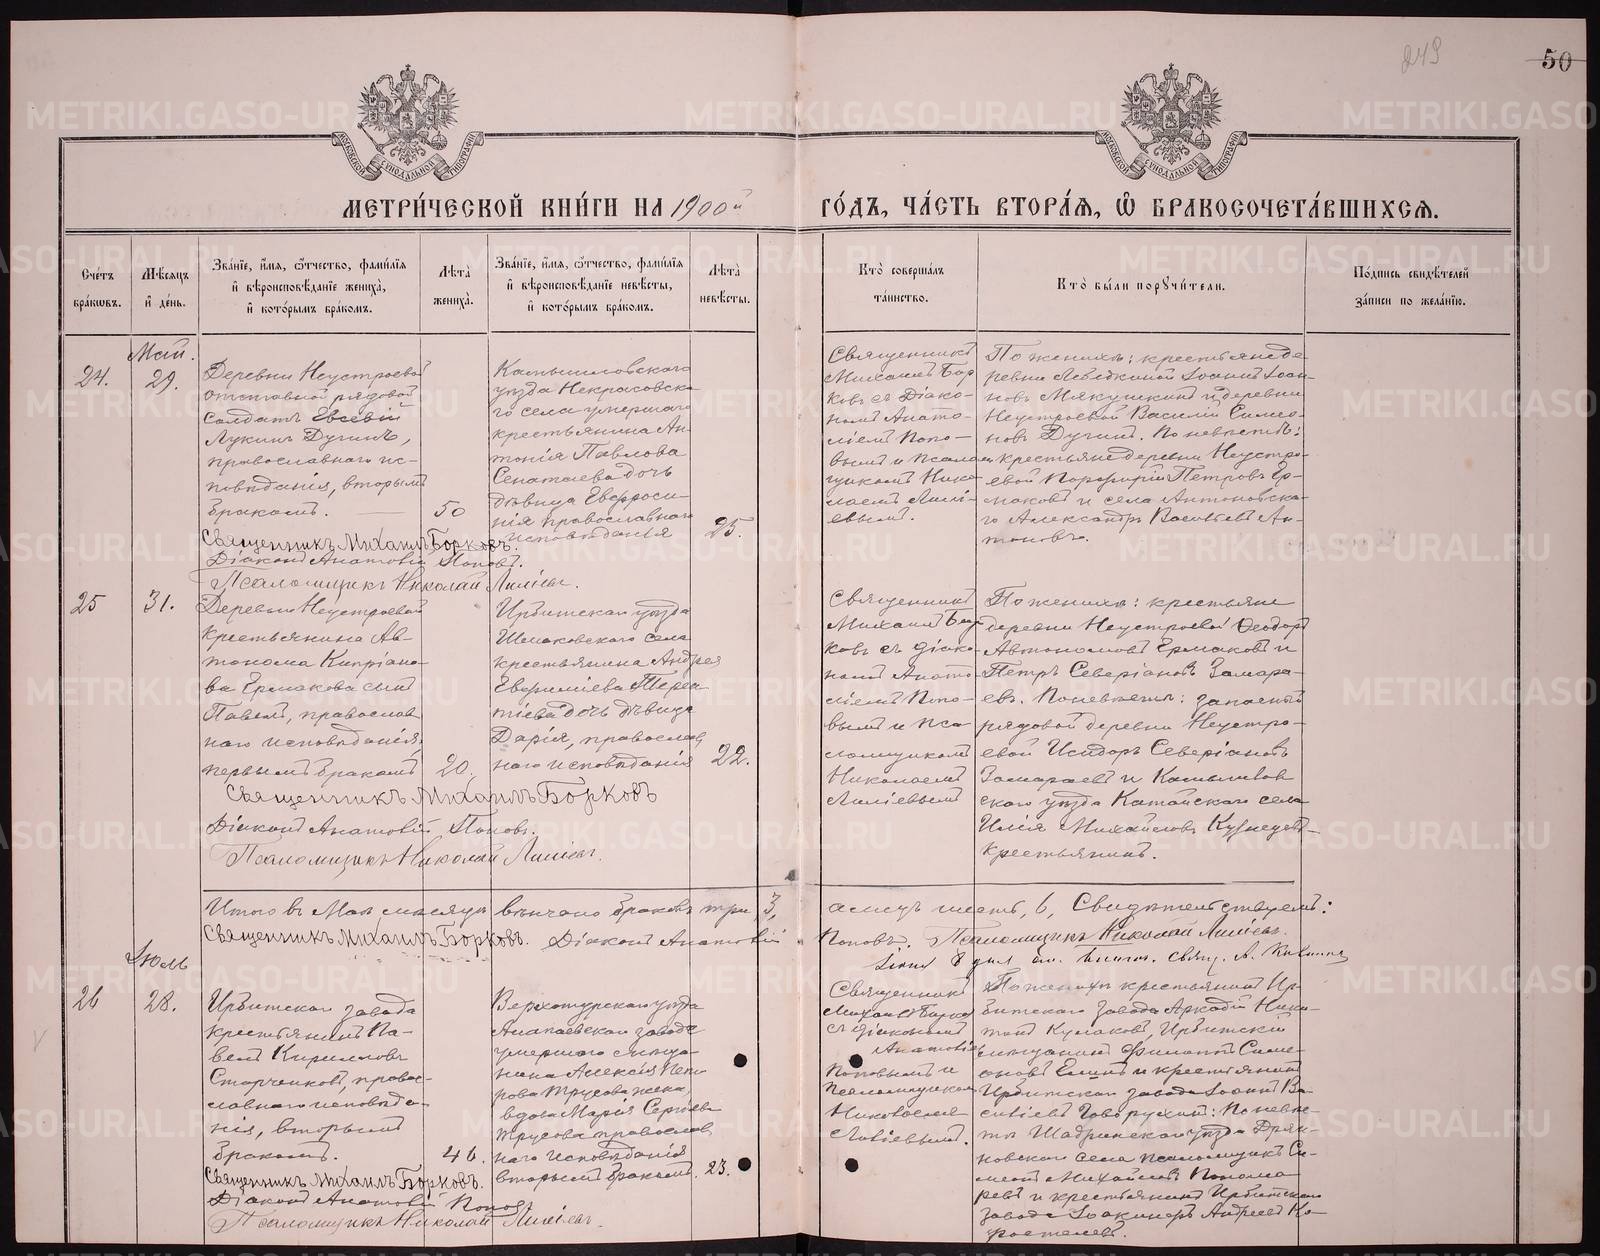 249
50
МОСКОВСКОЙ СѴНОДАЛЬНОЙ ТИПОГРАФІИ
МОСКОВСКОЙ СѴНОДАЛЬНОЙ ТИПОГРАФІИ
МЕТРИ́ЧЕСКОЙ КНИ́ГИ НА 1900й ГО́ДЪ, ЧА́СТЬ ВТОРА́Ѧ, Ѽ БРАКОСОЧЕТА́ВШИХСѦ.
Сче́тъ бра́кѡвъ.
Мѣ́сѧцъ и҆ де́нь.
Зва́нїе, и҆́мѧ, ѻ҆́тчество, фами́лїѧ и҆ вѣроисповѣ́данїе жениха̀, и҆ кото́рымъ бра́комъ.
Лѣ́та жениха̀.
Зва́нїе, и҆́мѧ, ѻ҆́тчество, фами́лїѧ и҆ вѣроисповѣ́данїе невѣ́сты, и҆ кото́рымъ бра́комъ.
Лѣ́та невѣ́сты.
Кто̀ соверша́лъ та́инство.
Кто̀ бы́ли порꙋчи́тели.
По́дпись свидѣ́телей за́писи по жела́нїю.
Май.
24.
29.
Деревни Неустроевой
отставной рядовой
солдатъ Евсевій
Лукинъ Дугинъ,
православнаго ис-
повѣданія, вторымъ
бракомъ.
50
Камышловскаго
уѣзда Некрасовска-
го села умершаго
крестьянина Ан-
тонія Павлова
дочь
дѣвица Евфроси-
нія православнаго
исповѣданія
25.
Священникъ
Михаилъ Бор
ковъ съ Діако-
номъ Анато-
ліемъ Попо-
вымъ и Псалом
щикомъ Нико
лаемъ Лилі-
евымъ.
По женихѣ: крестьяне де
ревни Лебедкиной Іоаннъ Іоан-
новъ Мякушкинъ и деревни
Неустроевой Василій Симео-
новъ Дугинъ. По невѣстѣ:
крестьяне деревни Неустро-
евой Порфирій Петровъ Ер-
маковъ и села Антоновска-
го Александръ Васильевъ Ан-
тоновъ.
Священникъ Михаилъ Борковъ.
Діаконъ Анатолій Поповъ.
Псаломщикъ Николай Лиліевъ.
25
31.
Деревни Неустроевой
крестьянина Ав-
тонома Кипріано-
ва Ермакова сынъ
Павелъ, православ
наго исповѣданія,
первымъ бракомъ
20.
Ирбитскаго уѣзда
Шмаковскаго села
крестьянина Андрея
Евфиміева Терен
тіева дочь дѣвица
Дарія, православ
наго исповѣданія
22.
Священникъ
Михаилъ Бор
ковъ съ діако-
номъ Анато
ліемъ Попо-
вымъ и Пса
ломщикомъ
Николаемъ
Лиліевымъ
По женихѣ: крестьяне
деревни Неустроевой Ѳеодоръ
Автономовъ Ермаковъ и
Петръ Северіановъ Замара-
евъ. По невѣстѣ: запасный
рядовой деревни Неустро-
евой Исидоръ Северіановъ
Замараевъ и Камышлов
скаго уѣзда Катайскаго села
Илія Михайловъ Кузнецовъ
крестьянинъ.
Священникъ Михаилъ Борковъ
Діаконъ Анатолій Поповъ.
Псаломщикъ Николай Лиліевъ.
Итого въ Маѣ мѣсяцѣ вѣнчано браковъ три, 3, а лицъ шесть, 6, Свидѣтельствуемъ:
Священникъ Михаилъ Борковъ. Діаконъ Анатолій Поповъ. Псаломщикъ Николай Лиліевъ.
Іюль
26
28.
Ирбитскаго завода
крестьянинъ Па-
велъ Кирилловъ
Старченковъ, право-
славнаго исповѣда-
нія, вторымъ
бракомъ.
46.
Верхотурскаго уѣзда
Алапаевскаго завода
умершаго
Алексія
Трусова жена,
вдова Марія Сергѣева
Трусова православ
наго исповѣданія
вторымъ бракомъ.
23.
Священникъ
Михаилъ Борков
съ діакономъ
Анатоліем
Поповымъ и
Псаломщиком
Николаемъ
Лиліевымъ.
По женихѣ крестьянинъ Ир-
битскаго завода Аркадій Ники-
тинъ Кулаковъ, Ирбитскій
Филиппъ Симе-
оновъ и крестьянинъ
Ирбитскаго завода Іоаннъ Ва-
силіевъ Говорухинъ: По невѣ-
стѣ Шадринскаго уѣзда Дрян-
новскаго села псаломщикъ Си-
меонъ Михайловъ Понома
ревъ и крестьянинъ Ирбитскаго
завода Іоакимъ Андреевъ Ко-
ростелевъ.
Священникъ Михаилъ Борковъ.
Діаконъ Анатолій Поповъ
Псаломщикъ Николай Лиліевъ.
METRIKI.GASO-URAL.RU